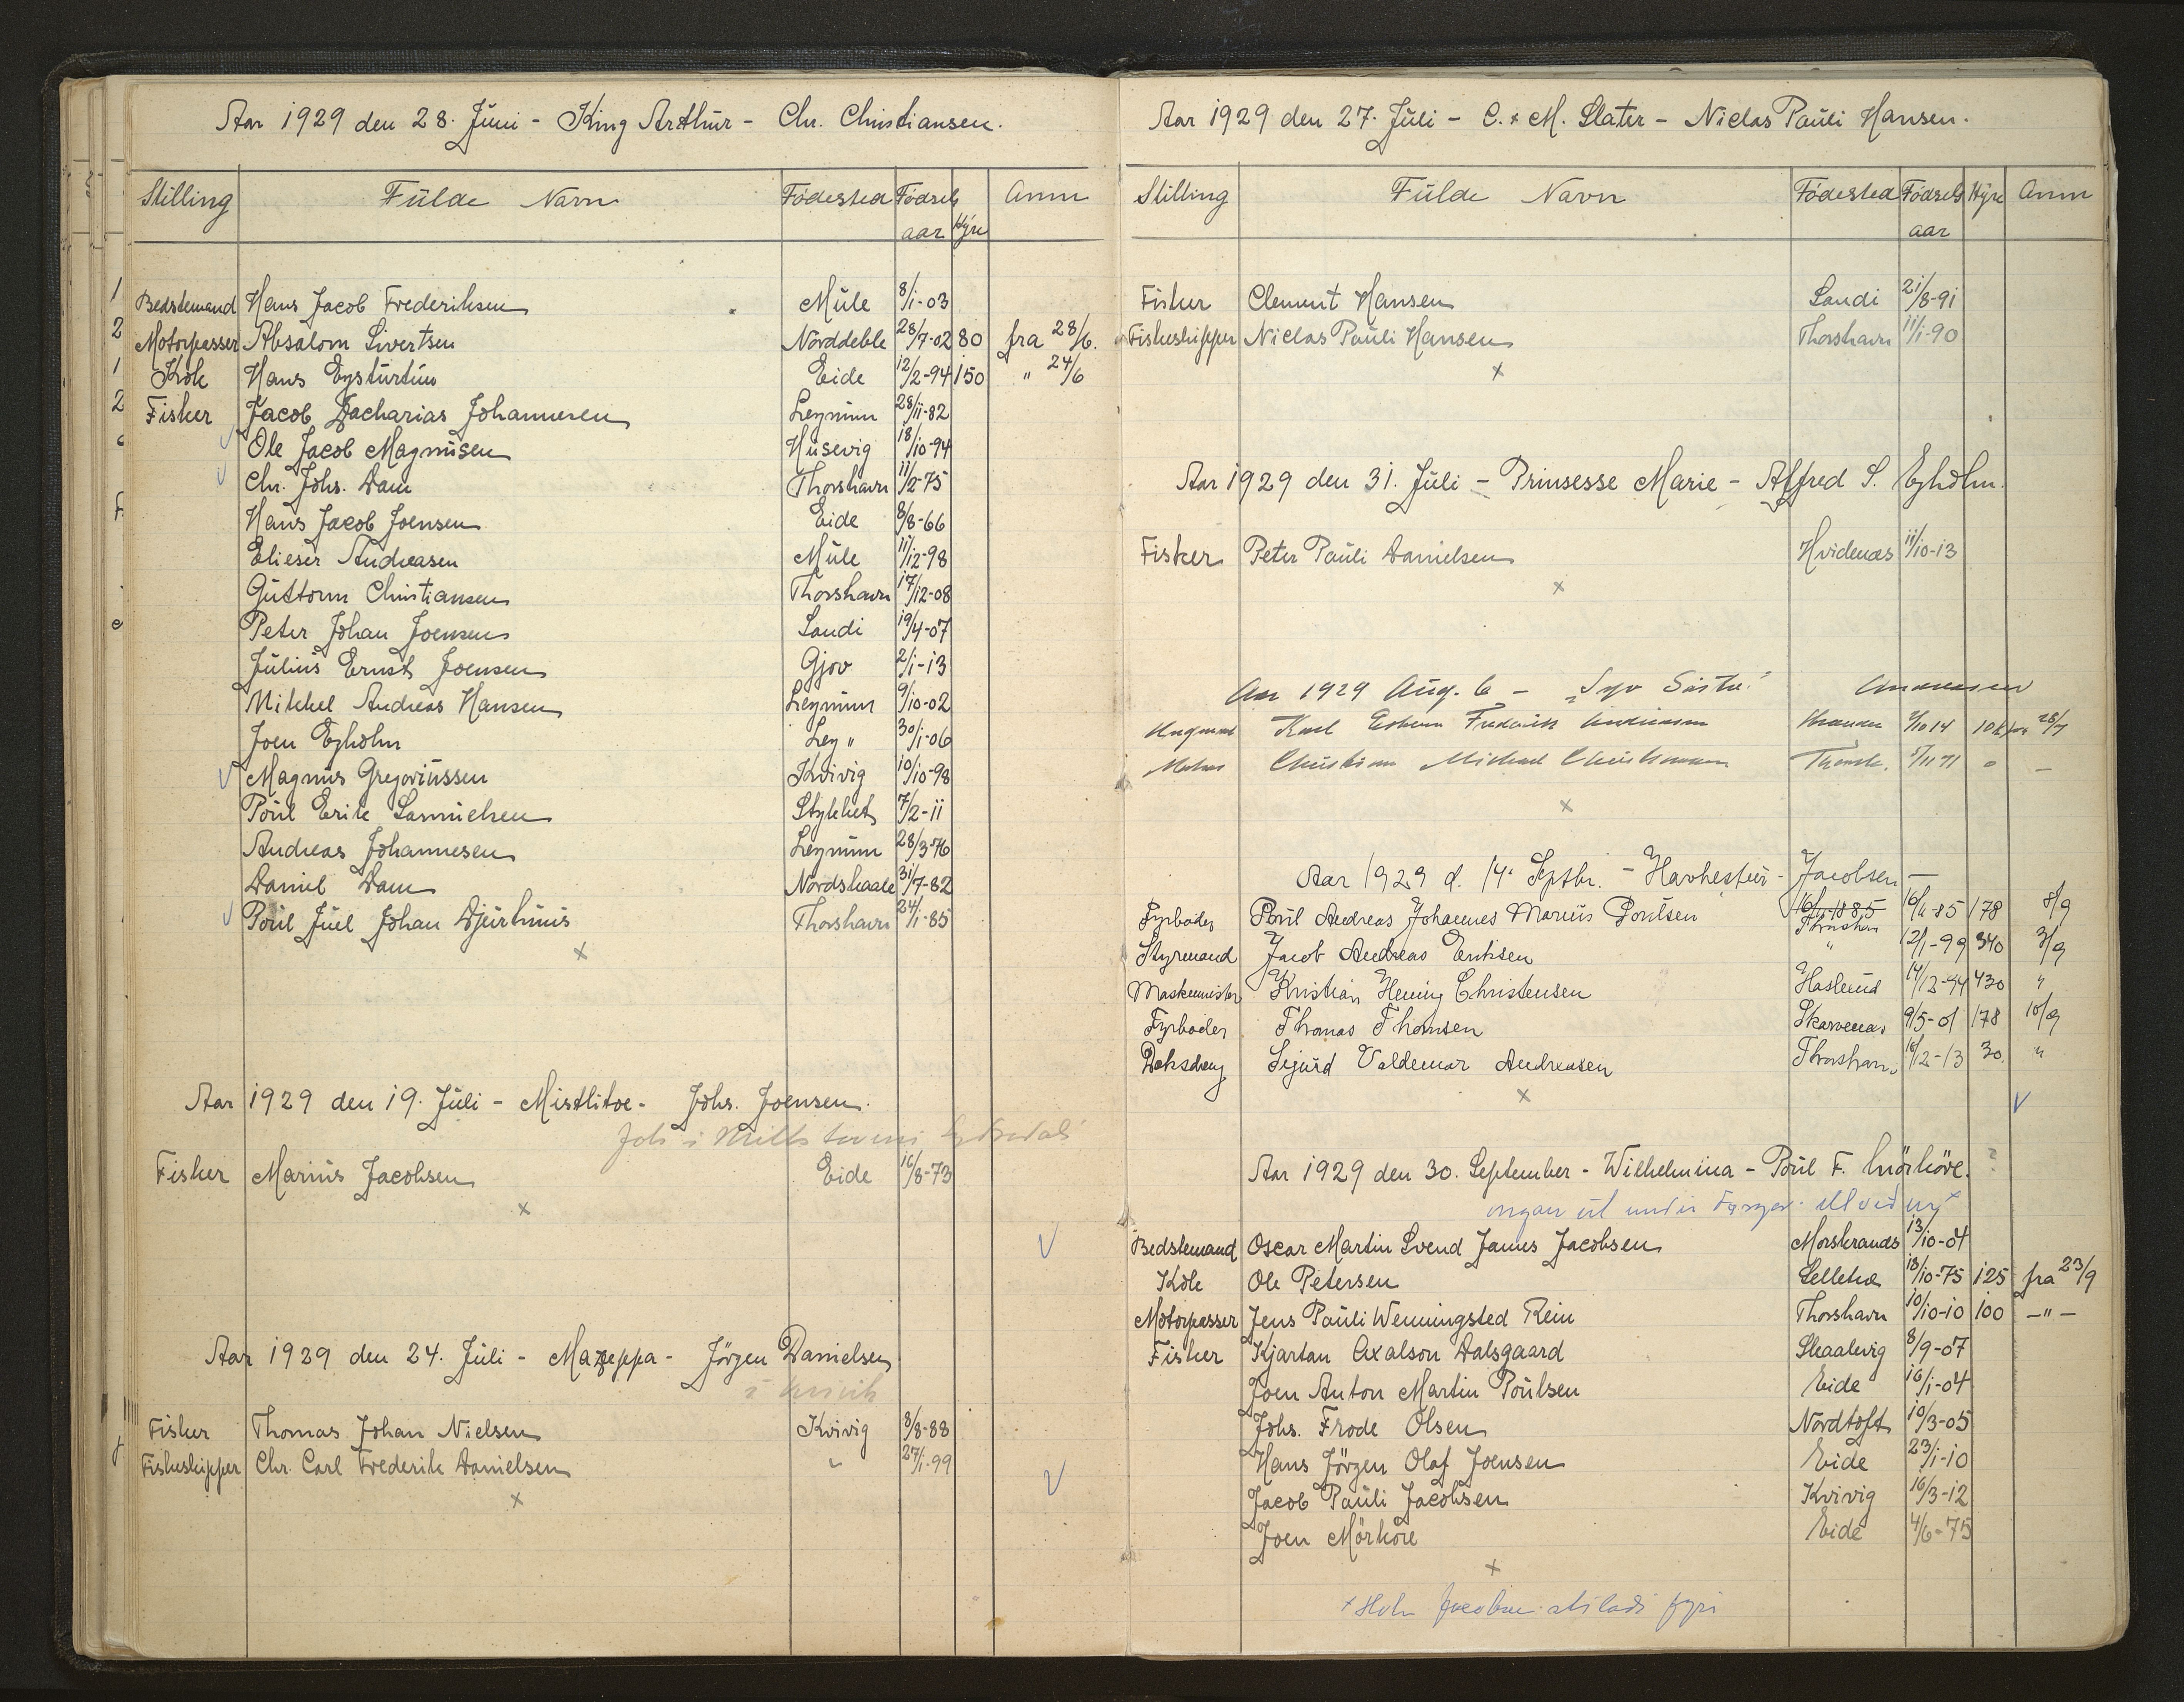 Aar 1929 den 28. Júni - King Arthúr - Chr. Christiansen.
Stilling Fúlde Navn Födested Födsels aar Hýre Anm
Bedstemand Hans Jacob Frederiksen Múle 8/1-03
Motorpasser Absalom Sivertsen Norddeble 28/7-02 80 fra 28/6.
Kok Hans Eystúrtún Eide 12/2-94 150 " 24/6
Fisker Jacob Zacharias Johannesen Leynúm 28/11-82
Ole Jacob Magnúsen Húsevig 18/10-94
Chr. Johs. Dam Thorshavn 11/2-75
Hans Jacob Joensen Eide 8/8-66
Elieser Andreasen Múle 11/12-98
Gúttorm Christiansen Thorshavn 17/12-08
Peter Johan Joensen Sandi 19/4-07
Júliús Ernst Joensen Gjov 2/1-13
Mikkel Andreas Hansen Leynúm 9/10-02
Joen Egholm Ley " 30/1-06
Magnús Gregoriússen Kvivig 10/10-98
Poúl Erik Samúelsen Stykket 7/2-11
Andreas Johannesen Leynúm 28/3-76
Daniel Dam Nordskaale 31/7-82
Poúl Júel Johan Djúrhúús Thorshavn 24/1-85
x
Aar 1929 den 19. Júli - Mistlitoe - Johs. Joensen.
Fisker Mariús Jacobsen Eide 16/8-73
x
Aar 1929 den 24. Júli - Mazeppa - Jörgen Danielsen
Fisker Thomas Johan Nielsen Kvivig 8/8-88
Fiskeskipper Chr. Carl Frederik Danielsen " 27/1-99
x
Aar 1929 den 27. Júli - C. & M. Slater - Niclas Paúli Hansen.
Stilling Fúlde Navn Födested Födsels aar Hýre Anm
Fisker Clement Hansen Sandi 21/8-91
Fiskeskipper Niclas Paúli Hansen Thorshavn 11/1-90
x
Aar 1929 den 31. Júli - Prinsesse Marie - Alfred S. Egholm.
Fisker Peter Paúli Danielsen Hvidenæs 11/10-13
x
Aar 1929 Aúg. 6 - "Syv Söstre"
Karl Frederik Andreasen 28/7
Christian Michael Christiansen Thorsh.
x
Aar 1929 d. 14. Septbr. - Havhestúr - Jacobsen -
Fyrböder Poúl Andreas Johannes Mariús Poúlsen 16/11-1885 Thorshavn 16/11-85 178 8/9
Styrmand Jacob Andreas Eriksen " 12/1-99 340 3/9
Maskinmister Kristian Hening Christensen Haslúnd 14/12-94 430 "
Fyrböder Thomas Thomsen Skarvenæs 9/5-01 178 10/9
Dæksdreng Sigúrd Valdemar Andreasen Thorshavn 16/12-13 30 "
x
Aar 1929 den 30. September - Wilhelmina - Poúl F. Mörköre. ?
Bedstemand Oscar Martin Svend James Jacobsen Morskranes 13/10-04
Kok Ole Petersen Selletræ 18/10-75 125 fra 23/9
Motorpasser Jens Paúli Wenningsted Rein Thorshavn 10/10-10 100 -"-
Fisker Kjartan Axelson Dalsgaard Skaalevig 8/9-07
Joen Anton Martin Poúlsen Eide 16/1-04
Johs. Frode Olsen Nordtoft 10/3-05
Hans Jörgen Olaf Joensen Eide 23/1-10
Jacob Paúli Jacobsen Kvivig 16/3-12
Joen Mörköre Eide 4/6-75
x